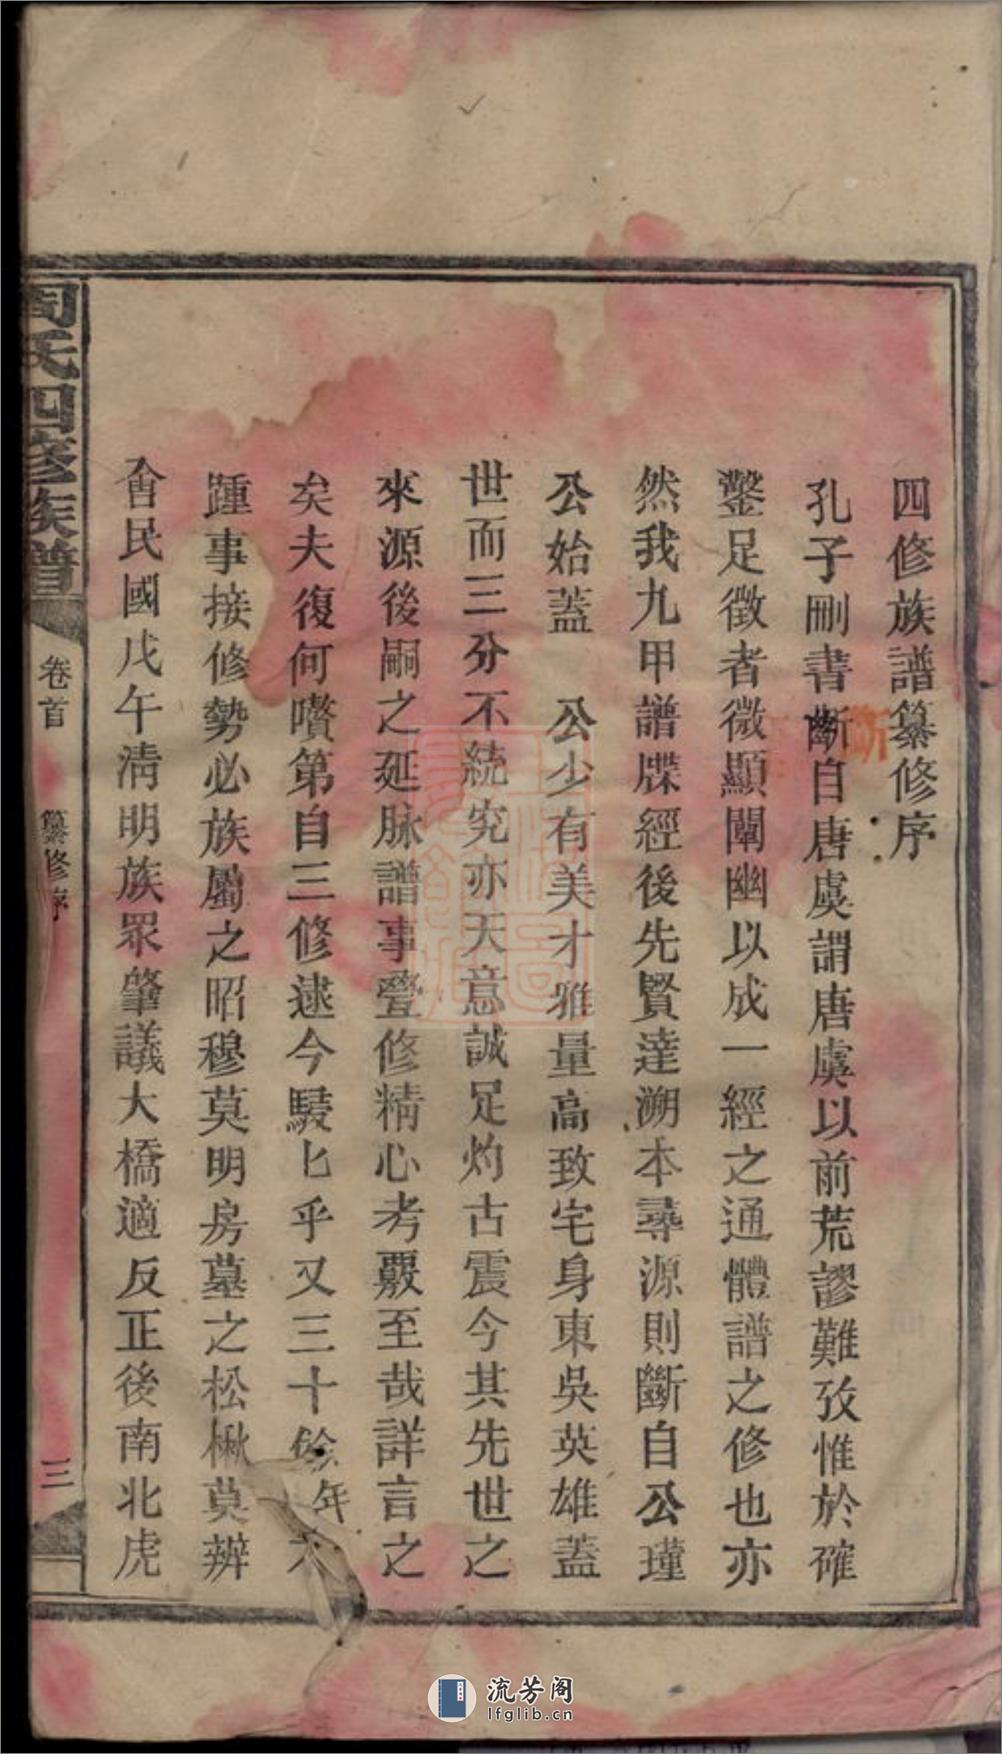 四修族譜纂修序
孔子刪書斷自唐虞謂唐虞以前荒謬難攷惟於確
鑿足徵者微顯闡幽以成一經之通體譜之修也亦
然我九甲譜牒經後先賢達溯本尋源則斷自公瑾
公始蓋　公少有美才雅量高致宅身東吳英雄蓋
世而三分不統究亦天意誠足灼古震今其先世之
來源後嗣之延脉譜事疊修精心考覈至哉詳言之
矣夫復何嚽第自三修逮今駸匕乎又三十餘年
踵事接修勢必族屬之昭穆莫明房墓之松楸莫辨
會民國戊午淸明族眾肇議大橋適反正後南北虎
周氏四修族譜
卷首
纂修序
三
斷
流芳阁
lfglib.cn